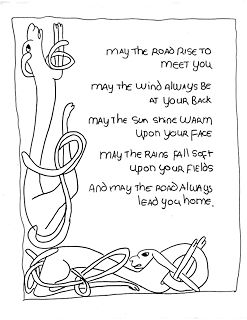 may the road rise to
meet you
may the wind always be
at your back
may the sun shine warm
upon your face
may the rains fall soft
upon your fields
And may the road always
lead you home.